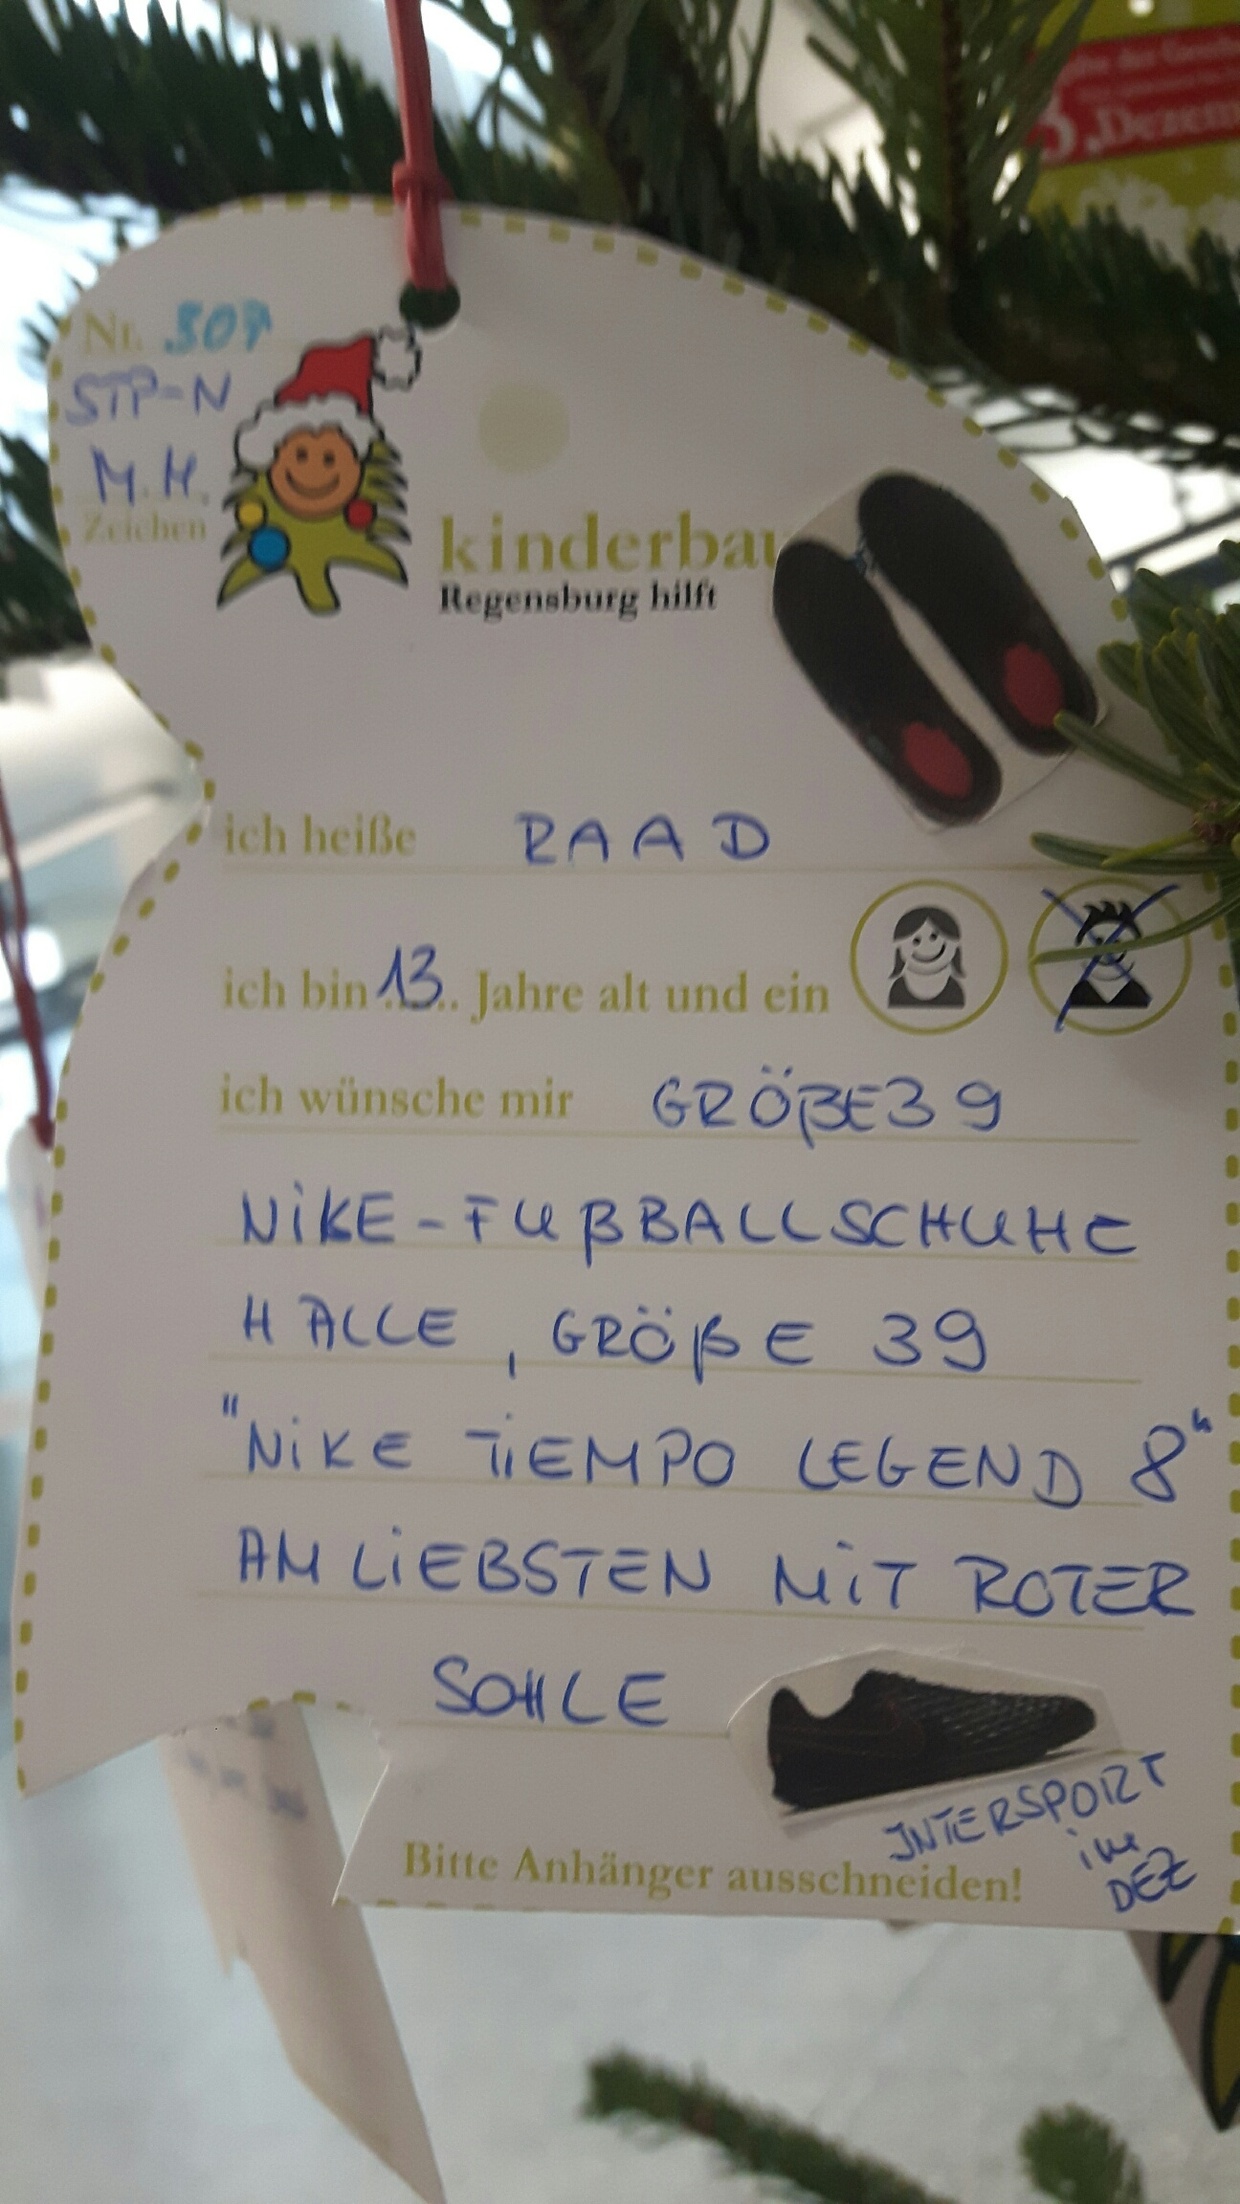 Dezem
Nr. 307
STP-N
M.H.
Zeichen
kinderbau
Regensburg hilft
ich heiße RAAD
ich bin 13 Jahre alt und ein
ich wünsche mir GRÖßE 39
NiKE-FUßBALLSCHUHE
HALLE, GRÖßE 39
"NiKE TiEMPO LEGEND 8"
AM LiEBSTEN MiT ROTER
SOHLE
INTERSPORT
im
DEZ
Bitte Anhänger ausschneiden!